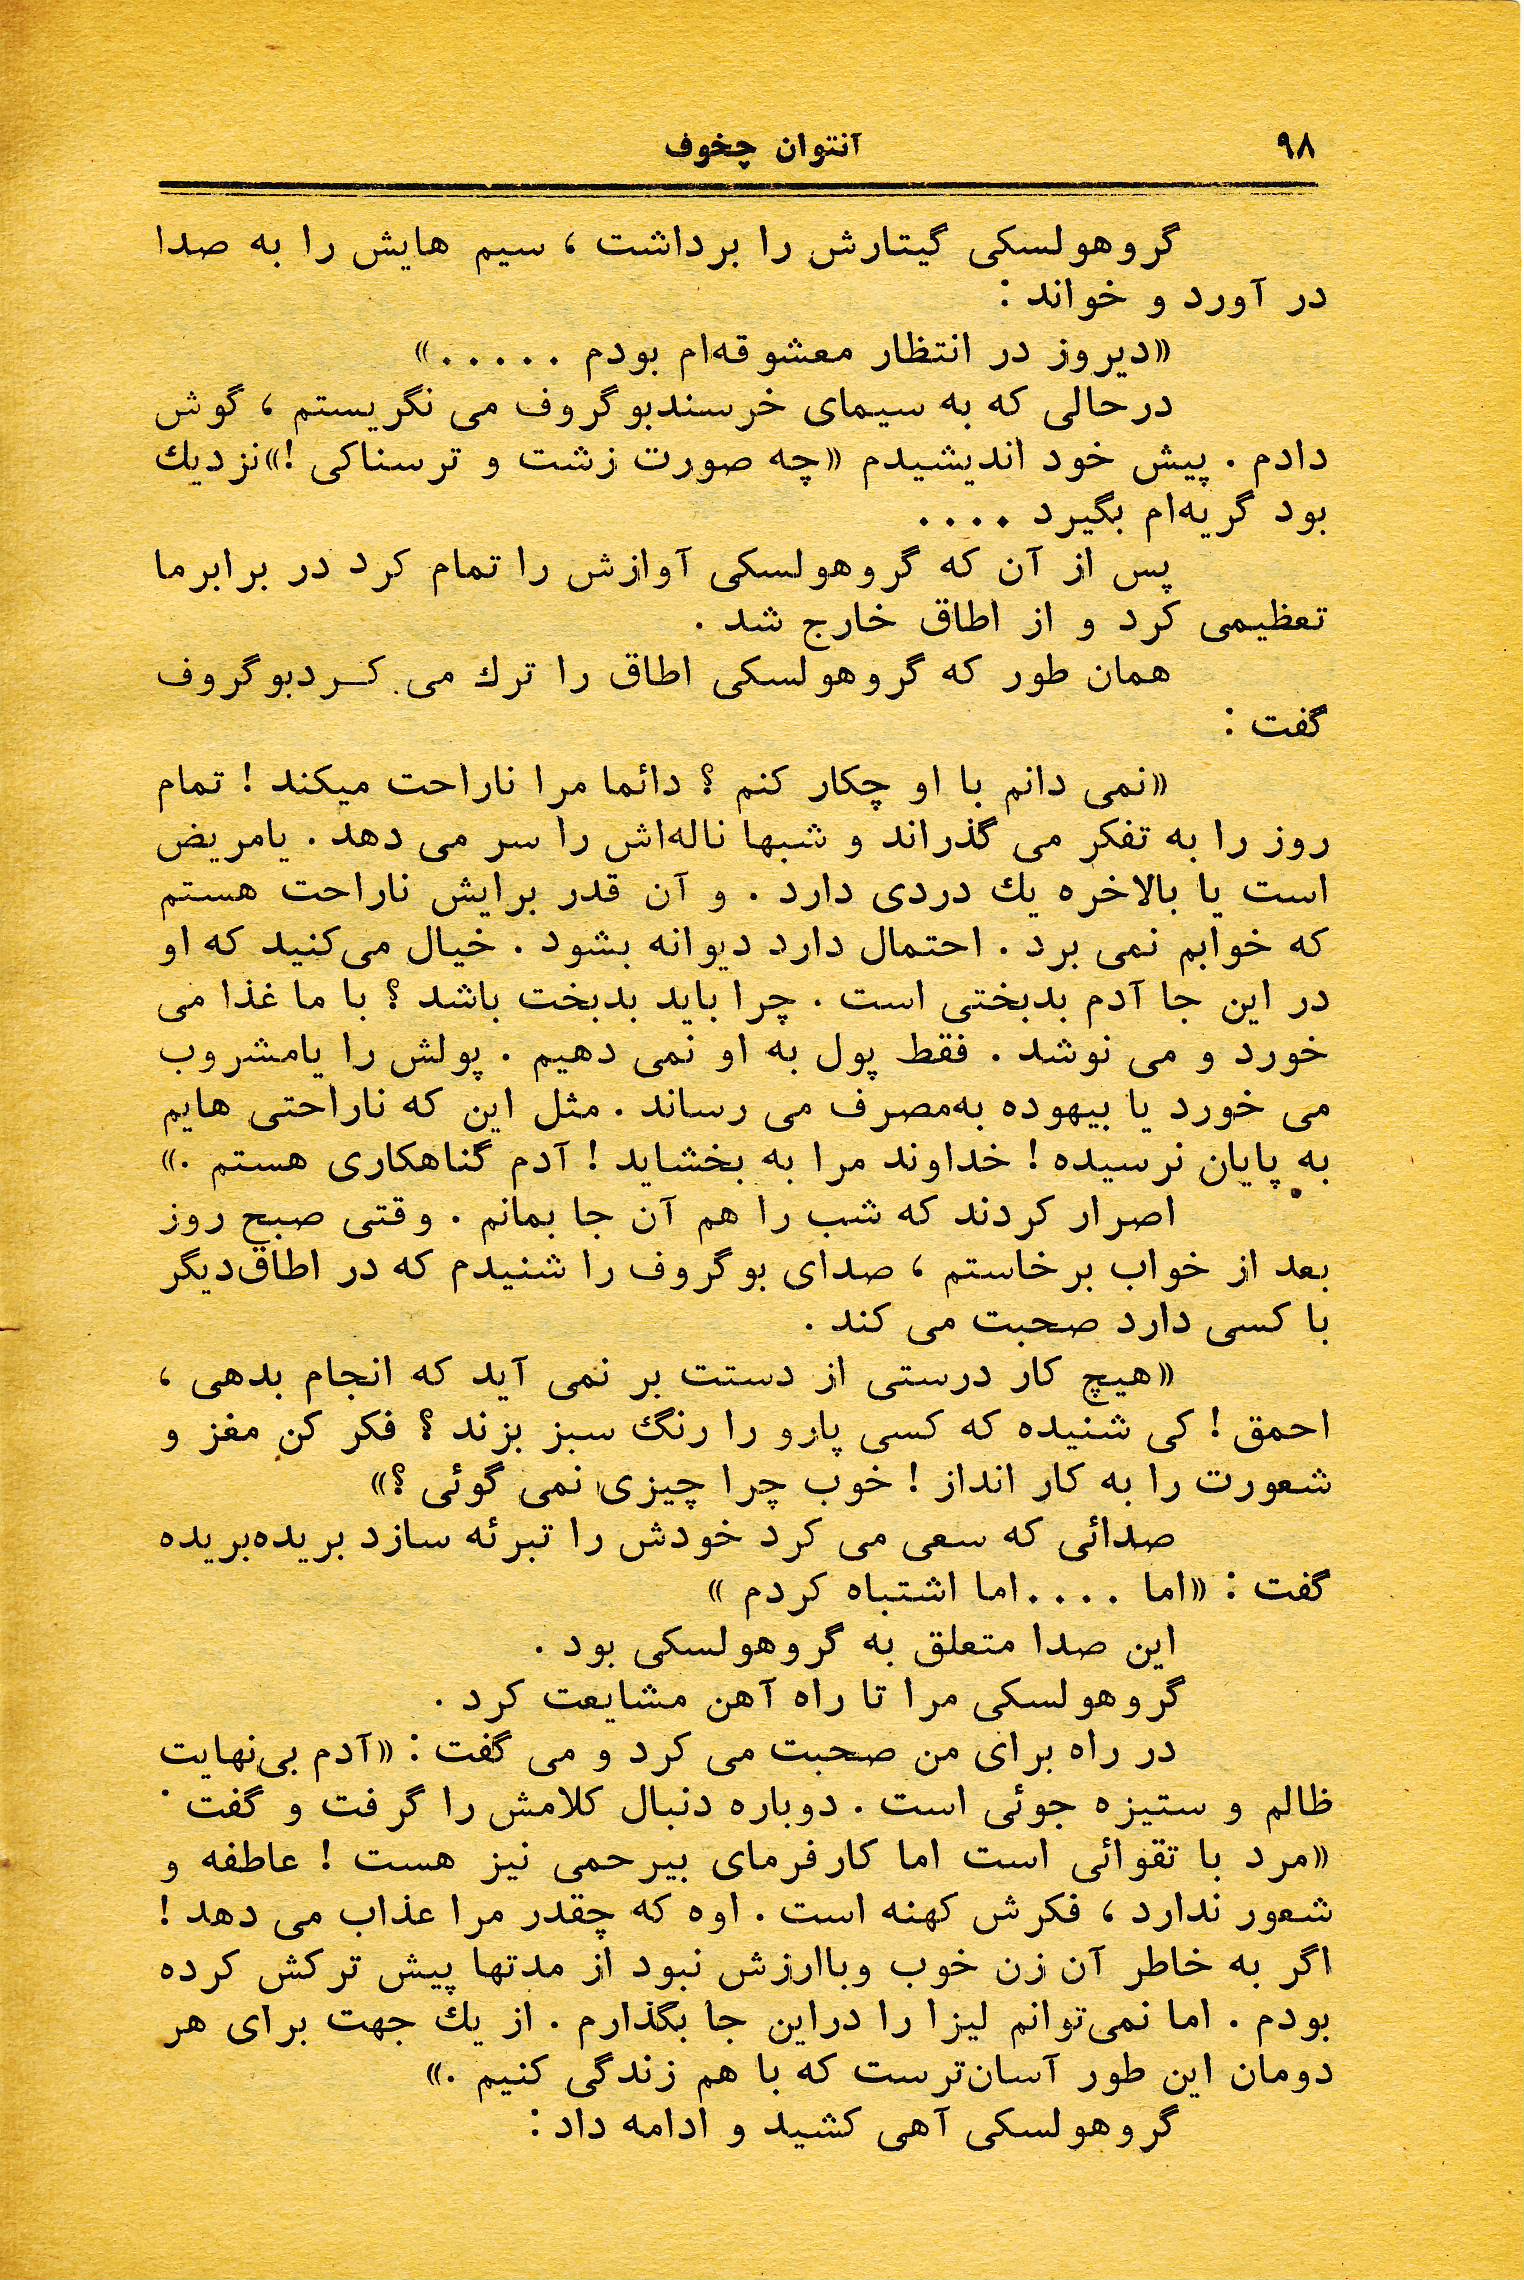 ۹۸
آنتوان چخوف
گروهولسکی گیتارش را برداشت ، سیم هایش را به صدا
در آورد و خواند :
«دیروز در انتظار معشوقه‌ام بودم . . . . . »
درحالی که به سیمای خرسندبوگروف می نگریستم ، گوش
دادم . پیش خود اندیشیدم «چه صورت زشت و ترسناکی !»نزدیك
بود گریه‌ام بگیرد . . . .
پس از آن که گروهولسکی آوازش را تمام کرد در برابرما
تعظیمی کرد و از اطاق خارج شد .
همان طور که گروهولسکی اطاق را ترك می کــردبوگروف
گفت :
«نمی دانم با او چکار کنم ؟ دائما مرا ناراحت میکند ! تمام
روز را به تفکر می گذراند و شبها ناله‌اش را سر می دهد . یامریض
است یا بالاخره یك دردی دارد . و آن قدر برایش ناراحت هستم
که خوابم نمی برد . احتمال دارد دیوانه بشود . خیال می‌کنید که او
در این جا آدم بدبختی است . چرا باید بدبخت باشد ؟ با ما غذا می
خورد و می نوشد . فقط پول به او نمی دهیم . پولش را یامشروب
می خورد یا بیهوده به‌مصرف می رساند . مثل این که ناراحتی هایم
به پایان نرسیده ! خداوند مرا به بخشاید ! آدم گناهکاری هستم .»
اصرار کردند که شب را هم آن جا بمانم . وقتی صبح روز
بعد از خواب برخاستم ، صدای بوگروف را شنیدم که در اطاق‌دیگر
با کسی دارد صحبت می کند .
«هیچ کار درستی از دستت بر نمی آید که انجام بدهی ،
احمق ! کی شنیده که کسی پارو را رنگ سبز بزند ؟ فکر کن مغز و
شعورت را به کار انداز ! خوب چرا چیزی نمی گوئی ؟»
صدائی که سعی می کرد خودش را تبرئه سازد بریده‌بریده
گفت : «اما . . . . اما اشتباه کردم »
این صدا متعلق به گروهولسکی بود .
گروهولسکی مرا تا راه آهن مشایعت کرد .
در راه برای من صحبت می کرد و می گفت : «آدم بی‌نهایت
ظالم و ستیزه جوئی است . دوباره دنبال کلامش را گرفت و گفت .
«مرد با تقوائی است اما کارفرمای بیرحمی نیز هست ! عاطفه و
شعور ندارد ، فکرش کهنه است . اوه که چقدر مرا عذاب می دهد !
اگر به خاطر آن زن خوب وباارزش نبود از مدتها پیش ترکش کرده
بودم . اما نمی‌توانم لیزا را دراین جا بگذارم . از یك جهت برای هر
دومان این طور آسان‌ترست که با هم زندگی کنیم .»
گروهولسکی آهی کشید و ادامه داد :